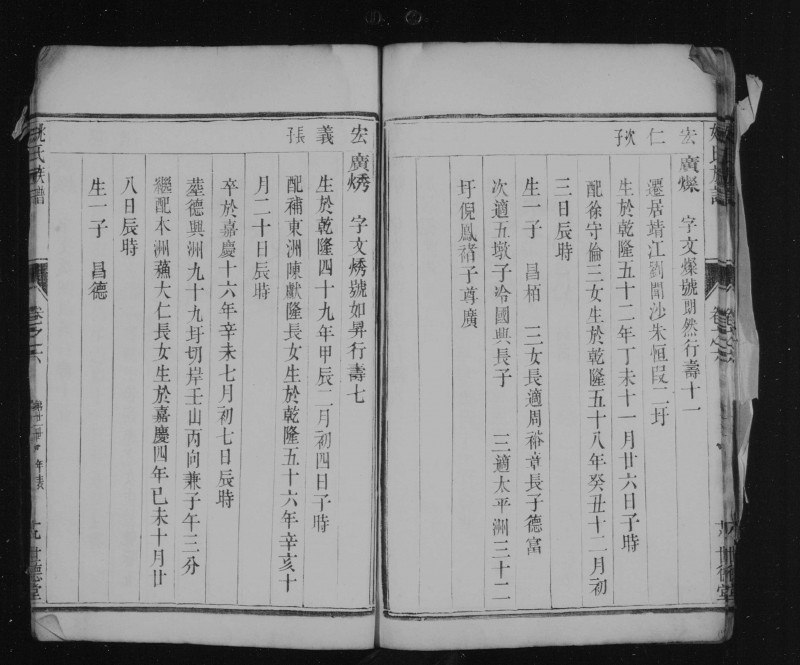 宏廣燦 字文燦號朗然行壽十一
仁 遷居靖江劉聞沙朱恒叚二圩
次子 生於乾隆五十二年丁未十一月廿六日子時
配徐守倫三女生於乾隆五十八年癸丑十二月初
三日辰時
生一子 昌柏 三女長適周裕章長子德富
次適五墩子冷國興長子 三適太平洲三十二
圩倪鳳褚子尊廣
宏廣烿 字文烿號如昇行壽七
義 生於乾隆四十九年甲辰二月初四日子時
長子 配補東洲陳獻隆長女生於乾隆五十六年辛亥十
月二十日辰時
卒於嘉慶十六年辛未七月初七日辰時
塟德興洲九十九圩切岸壬山丙向兼子午三分
繼配木洲蘓大仁長女生於嘉慶四年己未十月廿
八日辰時
生一子 昌德
姚氏族譜 卷之六 年表 世德堂